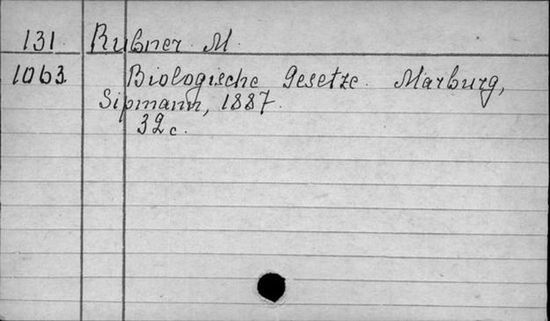 131 Rubner M.
1063 Biologische Gesetze. Marburg,
Sipmann, 1887.
32 c.